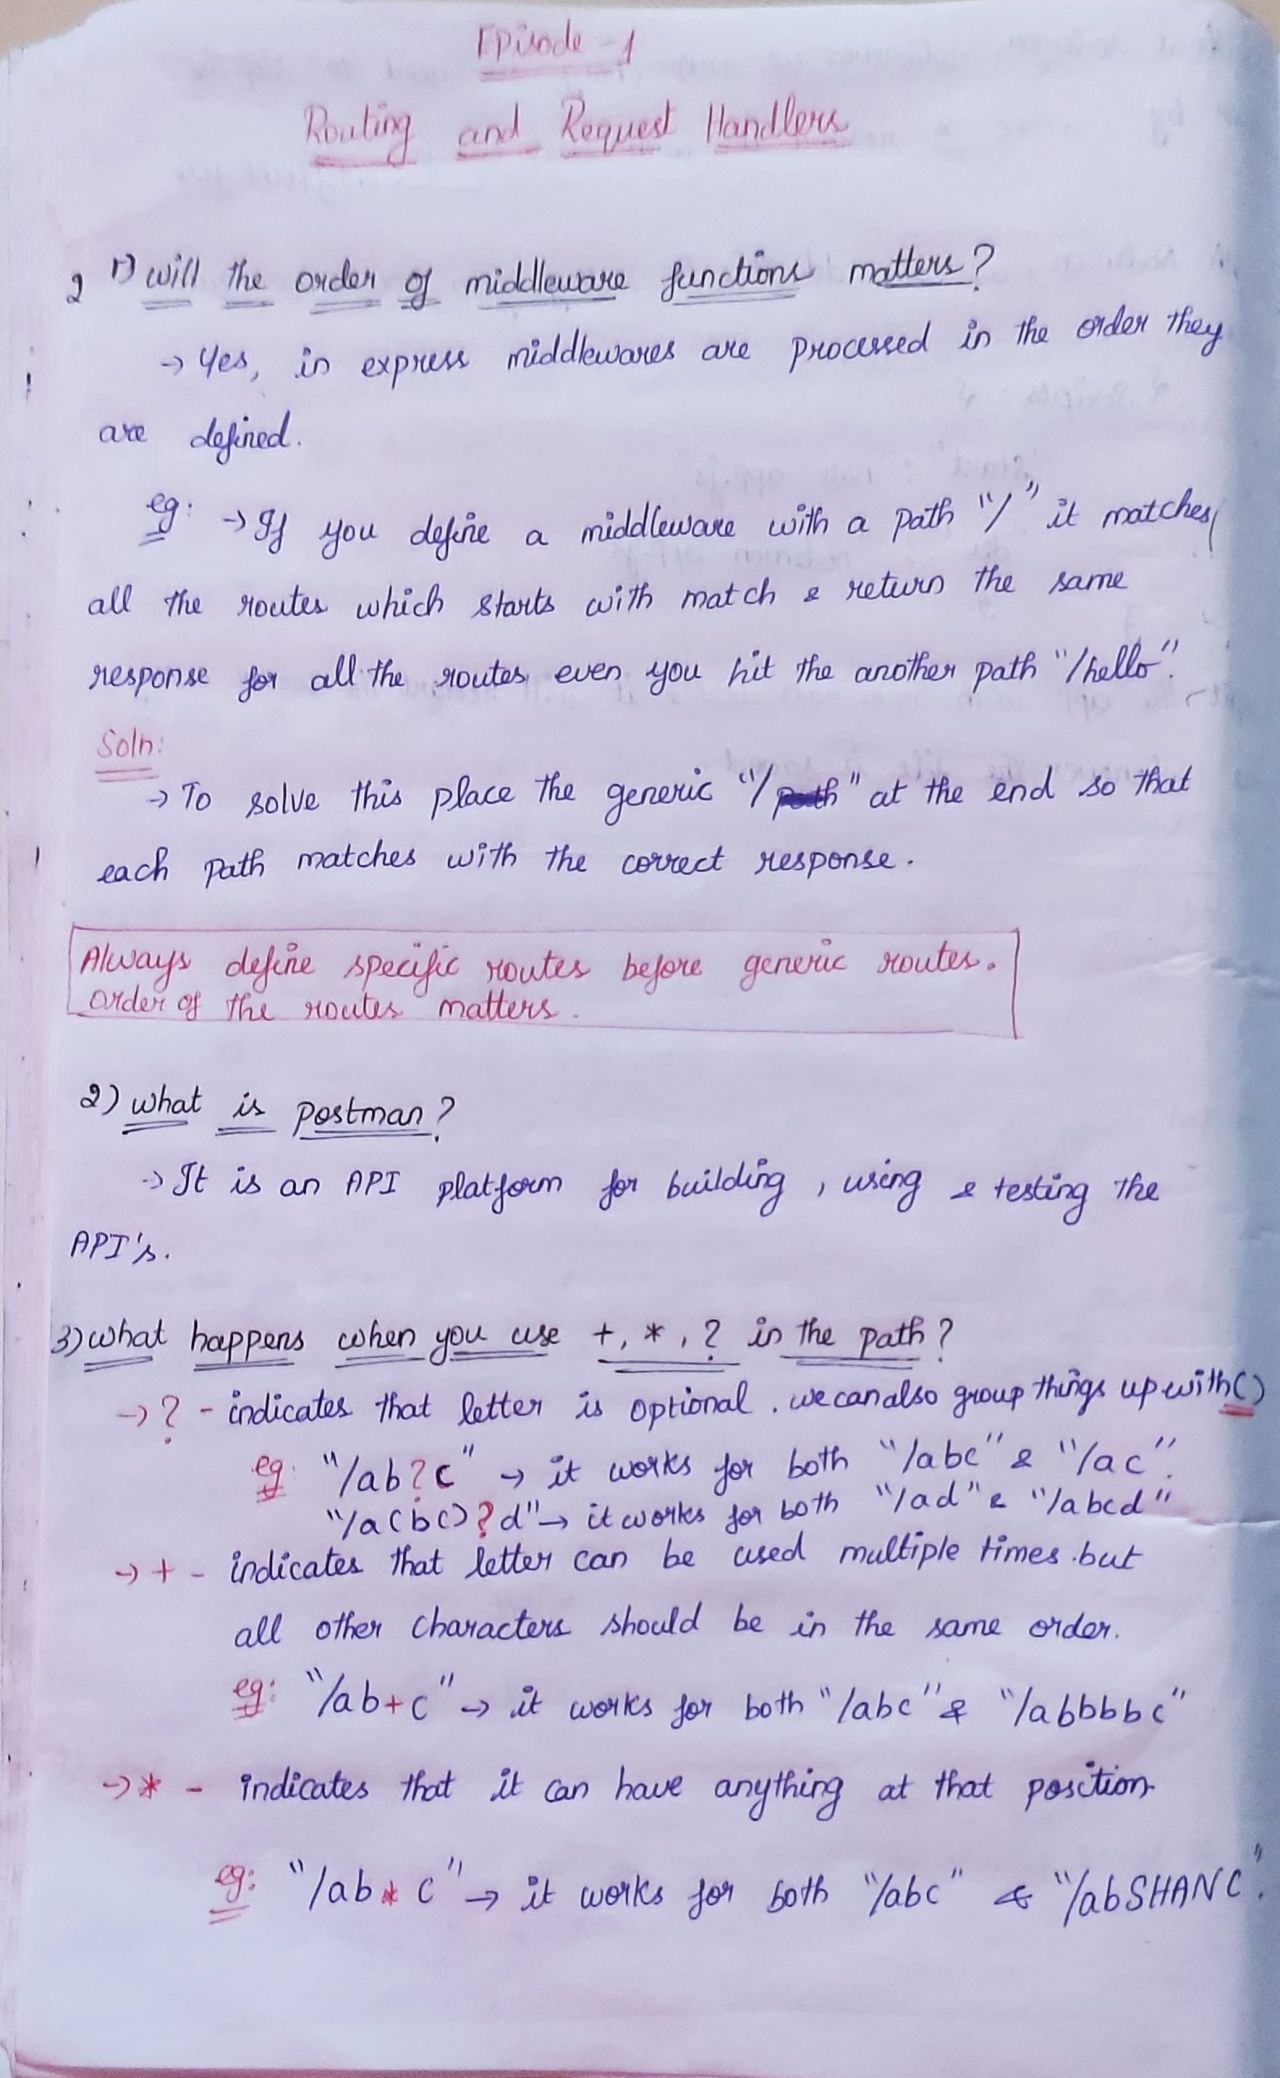 Episode-1
Routing and Request Handlers
1) will the order of middleware functions matters?
→ Yes, in express middlewares are processed in the order they
are defined.
eg: → If you define a middleware with a path "/" it matches
all the routes which starts with match & return the same
response for all the routes even you hit the another path "/hello".
Soln:
→ To solve this place the generic "/" at the end so that
each path matches with the correct response.
Always define specific routes before generic routes.
order of the routes matters.
2) what is postman?
→ It is an API platform for building, using & testing the
API's.
3) what happens when you use +, *, ? in the path?
→ ? - indicates that letter is optional. we can also group things up with ()
eg: "/ab?c" → it works for both "/abc" & "/ac".
"/a(bc)?d" → it works for both "/ad" & "/abcd"
→ + - indicates that letter can be used multiple times but
all other characters should be in the same order.
eg: "/ab+c" → it works for both "/abc" & "/abbbbc"
→ * - indicates that it can have anything at that position
eg: "/ab*c" → it works for both "/abc" & "/abSHANC".